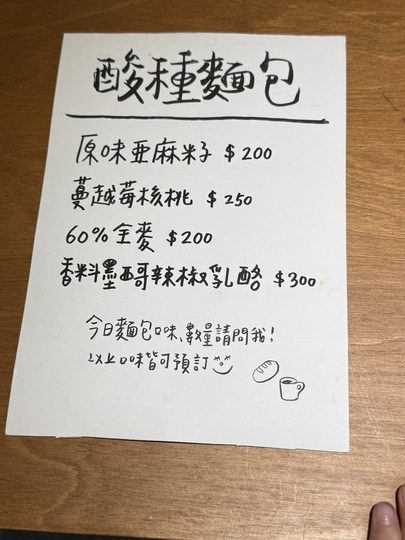 酸種麵包
原味亜麻籽 $200
蔓越莓核桃 $250
60%全麥 $200
香料墨西哥辣椒乳酪 $300
今日麵包口味、數量請問我!
以上口味皆可預訂